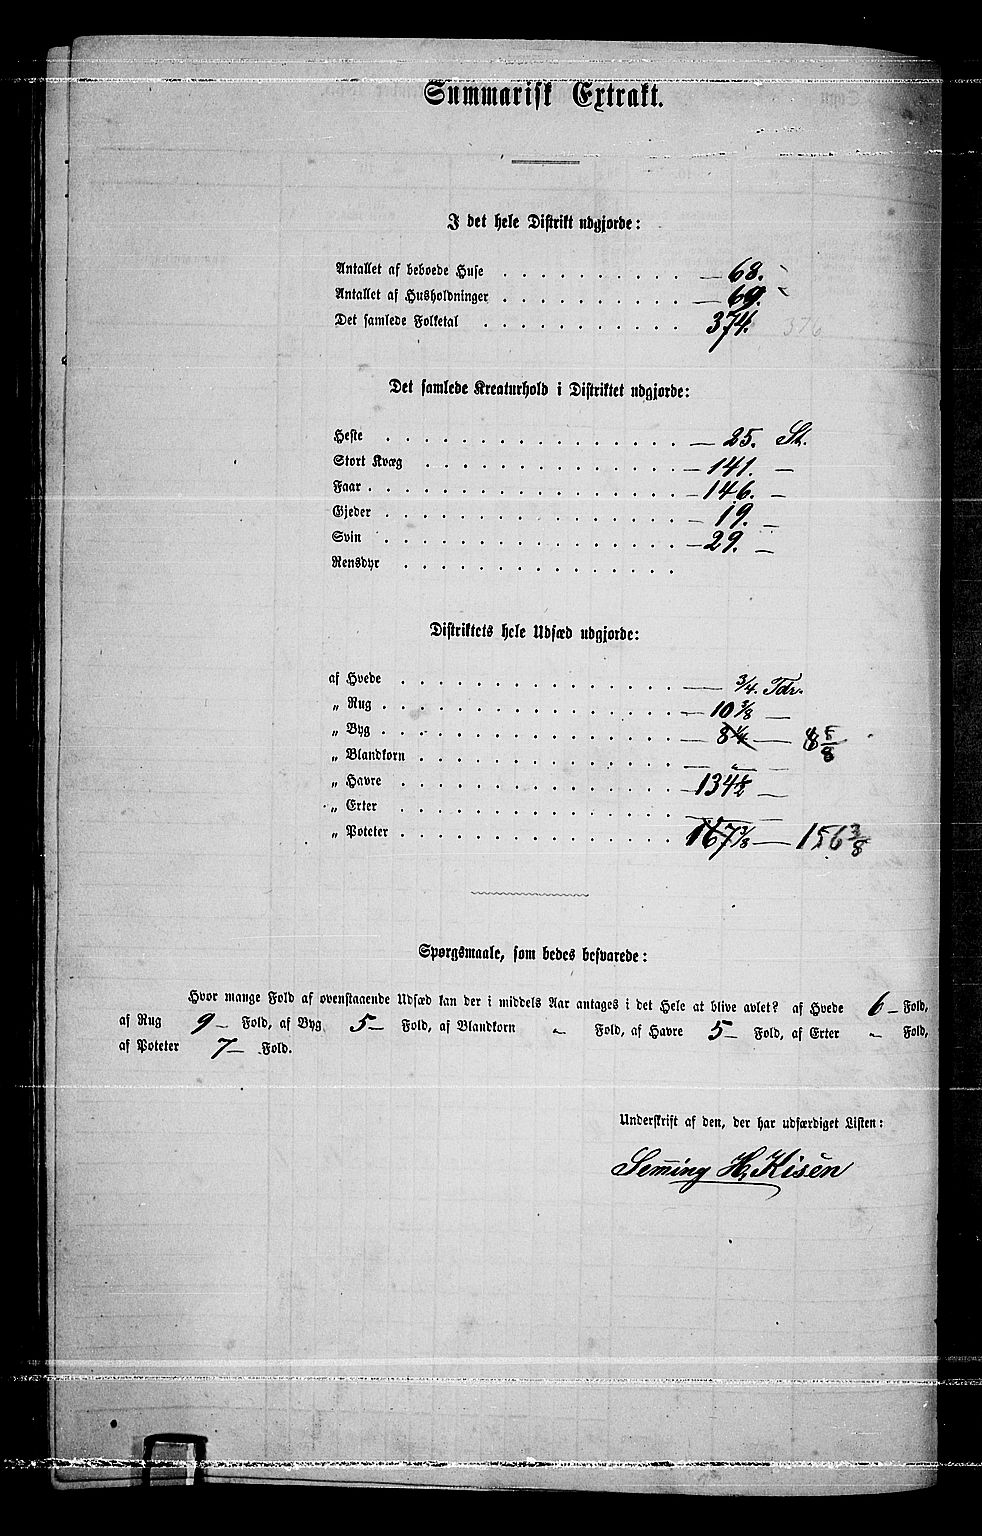 Summarisk Extrakt.
I det hele Distrikt udgjorde:
Antallet af beboede Huse . . . . . . . . . . — 68.
Antallet af Husholdninger . . . . . . . . . . — 69.
Det samlede Folketal . . . . . . . . . . . 374. 376
Det samlede Kreaturhold i Distriktet udgjorde:
Heste . . . . . . . . . . . . . . . . — 25. St.
Stort Kvæg . . . . . . . . . . . . . . — 141. —
Faar . . . . . . . . . . . . . . . . . — 146. —
Gjeder . . . . . . . . . . . . . . . . — 19. —
Svin . . . . . . . . . . . . . . . . — 29. —
Rensdyr . . . . . . . . . . . . . . .
Distriktets hele Udsæd udgjorde:
af Hvede . . . . . . . . . . . . . . . — 3/4. Tdr.
„ Rug . . . . . . . . . . . . . . . . — 10 3/8 —
„ Byg . . . . . . . . . . . . . . . . — 8 1/4 — 8 5/8
„ Blandkorn . . . . . . . . . . . . . . — „ —
„ Havre . . . . . . . . . . . . . . . — 134 1/2 —
„ Erter . . . . . . . . . . . . . . . — „ —
„ Poteter . . . . . . . . . . . . . . . 167 3/8 — 156 3/8
Spørgsmaale, som bedes besvarede:
Hvor mange Fold af ovenstaaende Udsæd kan der i middels Aar antages i det Hele at blive avlet? af Hvede 6 — Fold,
af Rug 9 — Fold, af Byg 5 — Fold, af Blandkorn „ Fold, af Havre 5 — Fold, af Erter „ Fold,
af Poteter 7 — Fold.
Underskrift af den, der har udfærdiget Listen:
Seming H. Kisen